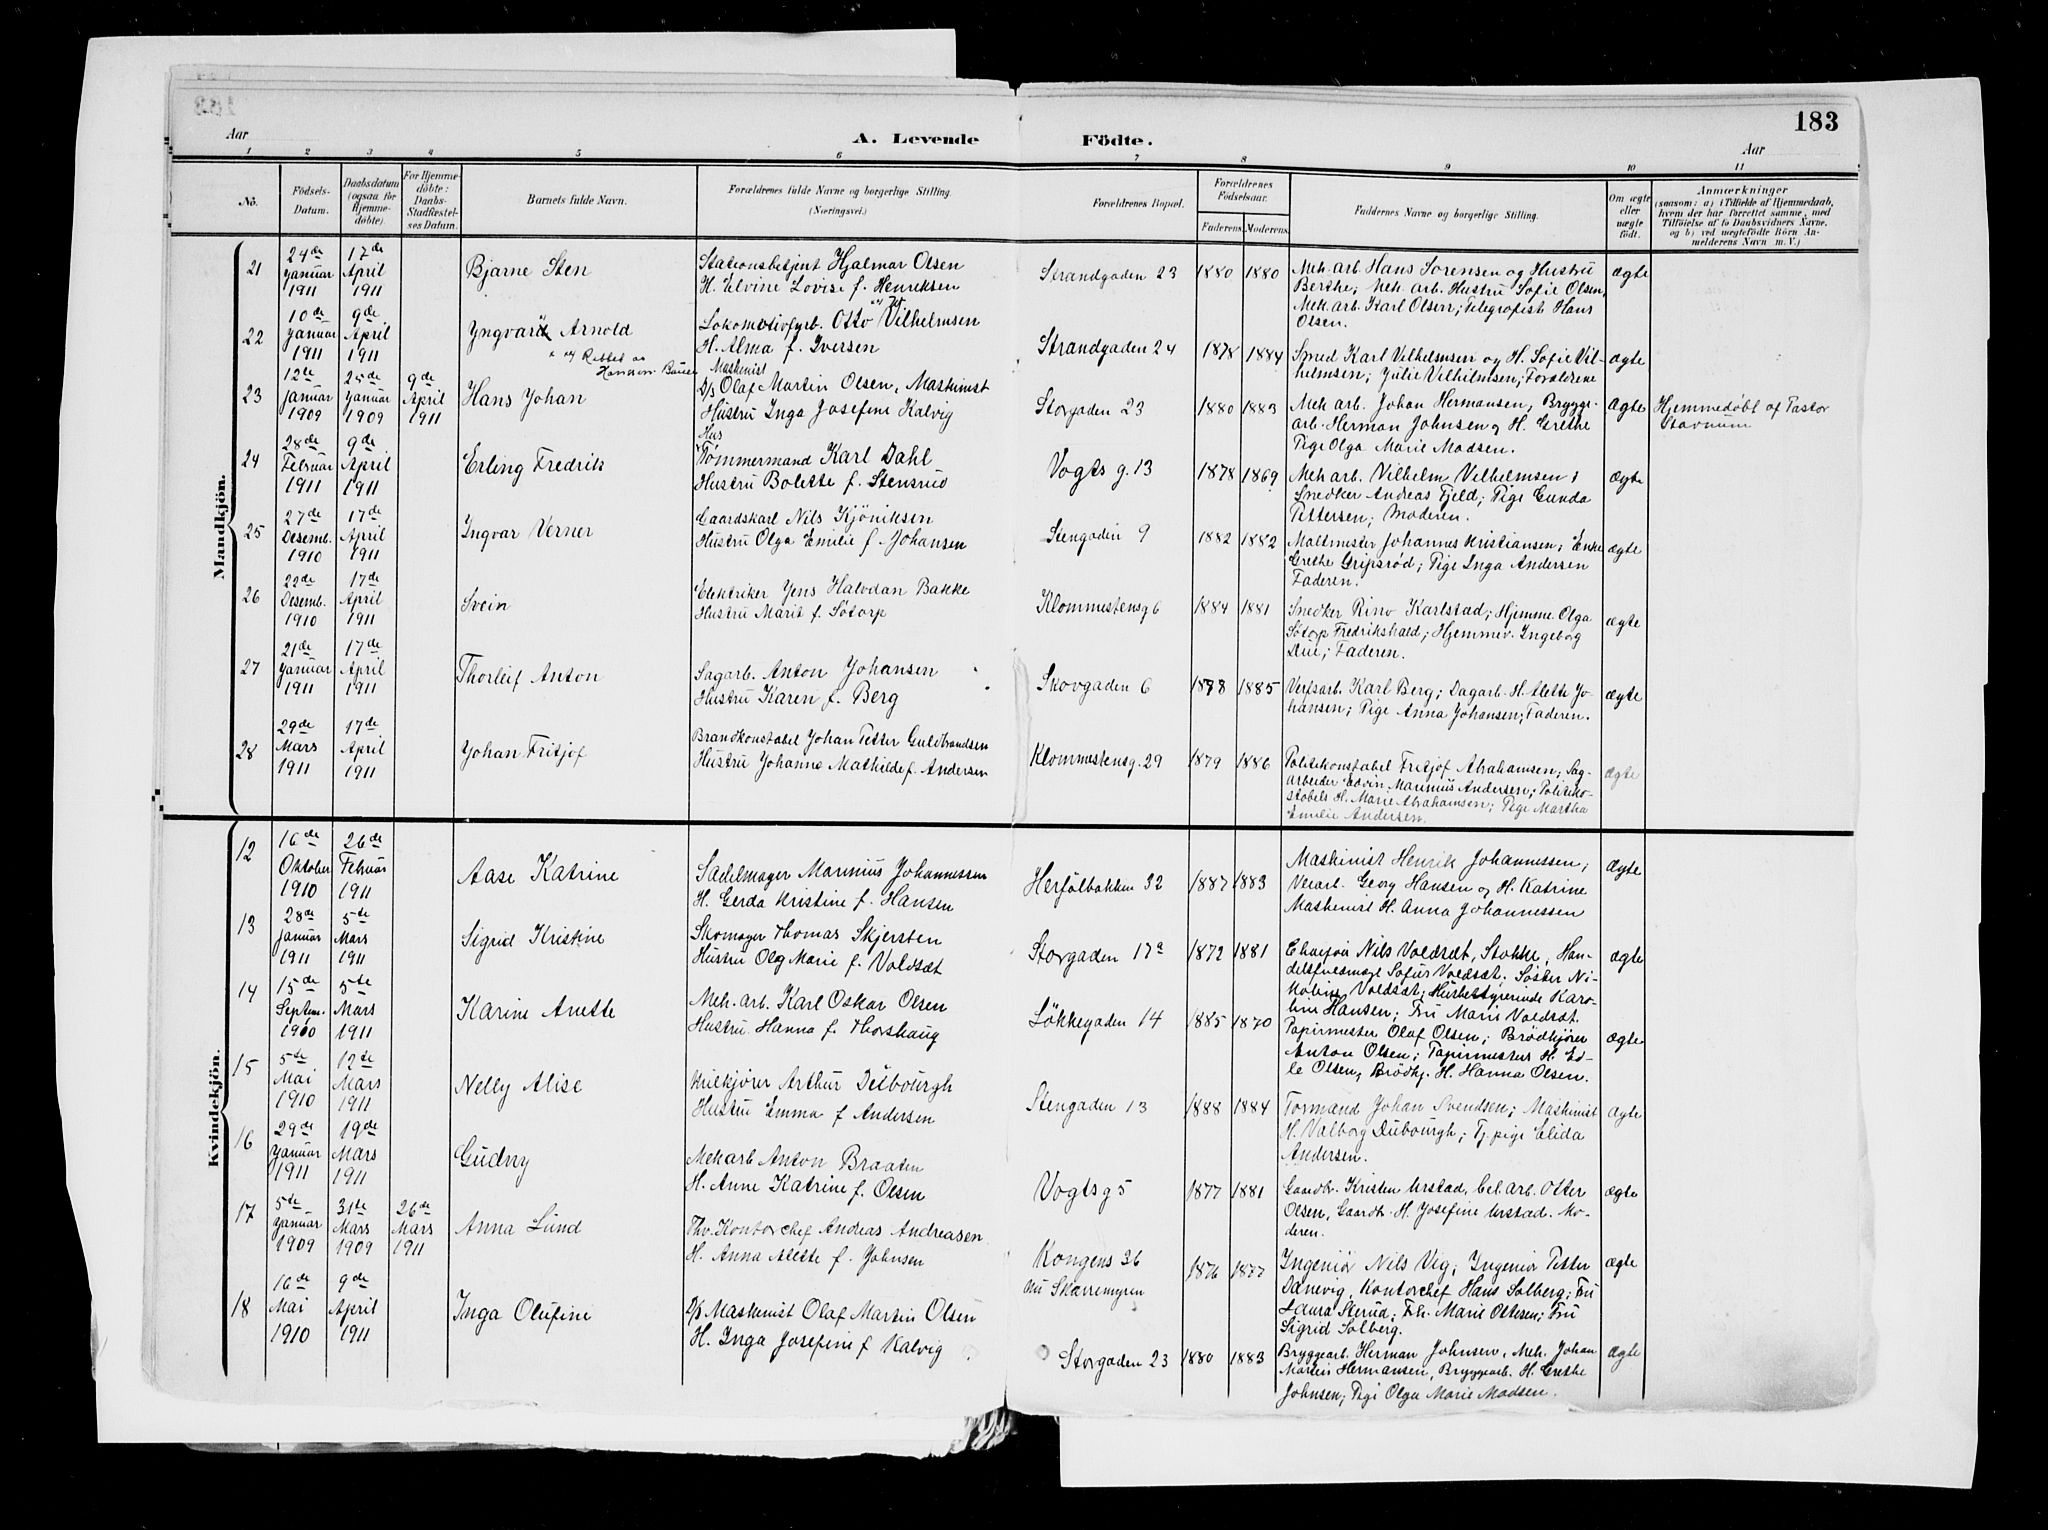 183
Aar
A. Levende Födte.
Aar
1 2 3 4 5 6 7 8 9 10 11
No.
Födsels-Datum.
Daabsdatum (ogsaa for Hjemmedöbte).
For Hjemmedöbte: Daabs-Stadfæstelses Datum.
Barnets fulde Navn.
Forældrenes fulde Navne og borgerlige Stilling. (Næringsvei.)
Forældrenes Bopæl.
Forældrenes Födselsaar.
Faderens. Moderens.
Faddernes Navne og borgerlige Stilling.
Om ægte eller uægte födt.
Anmærkninger
(saasom: a) i Tilfælde af Hjemmedaab,
hvem der har forrettet samme, med
Tilföielse af to Daabsvidners Navne,
og b) ved uægtefödte Börn Anmelderens Navn m. V.)
Mandkjön.
21 24de Januar 1911 17de April 1911
Bjarne Sten
Stationsbetjent Hjalmar Olsen
H. Elvine Lovise f. Henriksen
Strandgaden 23 1880 1880
Mek. arb. Hans Sorensen og Hustru
Berthe; Mek. arb. Hustru Sofie Olsen,
Mek. arb. Karl Olsen; Telegrafist Hans
Olsen.
ægte
22 10de Januar 1911 9de April 1911
Yngvar Arnold
Lokomotivfyrb. Otto Vilhelmsen
H. Alma f. Iversen
Strandgaden 24 1878 1884
Smed Karl Vilhelmsen og H. Sofie Vil-
helmsen; Julie Vilhelmsen; Forældrene
ægte
23 12te Januar 1909 25de Januar 1909 9de April 1911
Hans Johan
Maskinist
D/S Olaf Martin Olsen, Maskinist
Hustru Inga Josefine Kalvig
Storgaden 23 1880 1883
Mek arb. Johan Hermansen, Brygge-
arb. Herman Johnsen og H. Grethe
Pige Olga Marie Madsen.
ægte
Hjemmedøbt af Pastor
Stavnum
24 28de Februar 1911 9de April 1911
Erling Fredrik
Hus
Tømmermand Karl Dahl
Hustru Bolette f. Stensrud
Vogts g. 13 1878 1869
Mek arb. Vilhelm Vilhelmsen;
Snedker Andreas Fjeld; Pige Gunda
Pettersen; Moderen.
ægte
25 27de Desemb. 1910 17de April 1911
Ingvar Verner
Gaardskarl Nils Kjøniksen
Hustru Olga Emilie f. Johansen
Stengaden 9 1882 1882
Maltmester Johannes Kristiansen; Enke
Grethe Gripsrød; Pige Inga Andersen
Faderen.
ægte
26 22de Desemb. 1910 17de April 1911
Svein
Elektriker Jens Halvdan Bakke
Hustru Marit f. Søtorp
Klommestensg 6 1884 1881
Snedker Rino Karlstad; Hjemme. Olga
Søtorp Fredrikshald; Hjemmev. Ingeborg
Due; Faderen.
ægte
27 21de Januar 1911 17de April 1911
Thorleif Anton
Sagarb. Anton Johansen
Hustru Karen f. Berg
Skovgaden 6 1878 1885
Verfsarb. Karl Berg; Dagarb. H. Aleth Jo-
hansen; Pige Anna Johansen; Faderen.
ægte
28 29de Mars 1911 17de April 1911
Johan Fritjof
Brandkonstabel Johan Petter Guldbrandsen
Hustru Johanne Mathilde f. Andersen
Klommestensg. 29 1879 1886
Politikonstabel Fritjof Abrahamsen; Sag-
arbeider Edvin Marinius Andersen; Politiko-
stabels H. Marie Abrahamsen; Pige Martha
Emilie Andersen.
ægte
Kvindekjön.
12 16de Oktober 1910 26de Februar 1911
Aase Katrine
Sadelmager Marinius Johannessen
H. Gerda Kristine f. Hansen
Herfølbakken 32 1887 1883
Maskinist Henrik Johannessen;
Verarb. Georg Hansen og H. Katrine
Maskinist H. Anna Johannessen
ægte
13 28de Januar 1911 5te Mars 1911
Sigrid Kristine
Skomager Thomas Skjersten
Hustru Olg Marie f. Voldsæt
Storgaden 17a 1872 1881
Nils Voldsæt, Stokke, Han-
delsfuldmægt Sofus Voldsæt; Søster Ni-
koline Voldsæt; Husbestyrerinde Karo-
line Hansen; Fru Marie Voldsæt.
ægte
14 15de Septem. 1910 5te Mars 1911
Karine Anette
Mek. arb. Karl Oskar Olsen
Hustru Hanna f. Thorshaug
Løkkegaden 14 1885 1870
Papirmester Olaf Olsen; Brødkjører
Anton Olsen; Papirmesters H. Ed-
le Olsen, Brødkj. H. Hanna Olsen.
ægte
15 5te Mai 1910 12te Mars 1911
Nelly Alise
Kulkjører Arthur Dubourgh
Hustru Emma f. Andersen
Stengaden 13 1888 1884
Formand Johan Svendsen; Maskinist
H. Valborg Dubourgh; Tj. pige Elida
Andersen.
ægte
16 29de Januar 1911 19de Mars 1911
Gudny
Mek arb Anton Braaten
H. Anne Katrine f. Olsen
Vogtsg 5 1877 1881
Gaardbr. Kristen Urstad, bel. arb. Otter
Olsen, Gaardbr. H. Josefine Urstad. Mo-
deren.
ægte
17 5te Januar 1909 31te Mars 1909 26de Mars 1911
Anna Lund
Thv. Kontorchef Andreas Andreasen
H. Anna Alette f. Johnsen
Kongens 36
nu Skarremyren
1876 1877
Ingeniør Nils Vig; Ingeniør Petter
Danevig, Kontorchef Hans Solberg; Fru
Laura Sterud; Frk. Marie Ottesen; Fru
Sigrid Solberg.
ægte
18 16de Mai 1910 9de April 1911
Inga Olufine
D/S Maskinist Olaf Martin Olsen
H. Inga Josefine f Kalvig
Storgaden 23 1880 1883
Bryggearb. Herman Johnsen, Mek. Johan
Martin Hermansen, Bryggearb. H. Grethe
Johnsen; Pige Olga Marie Madsen.
ægte